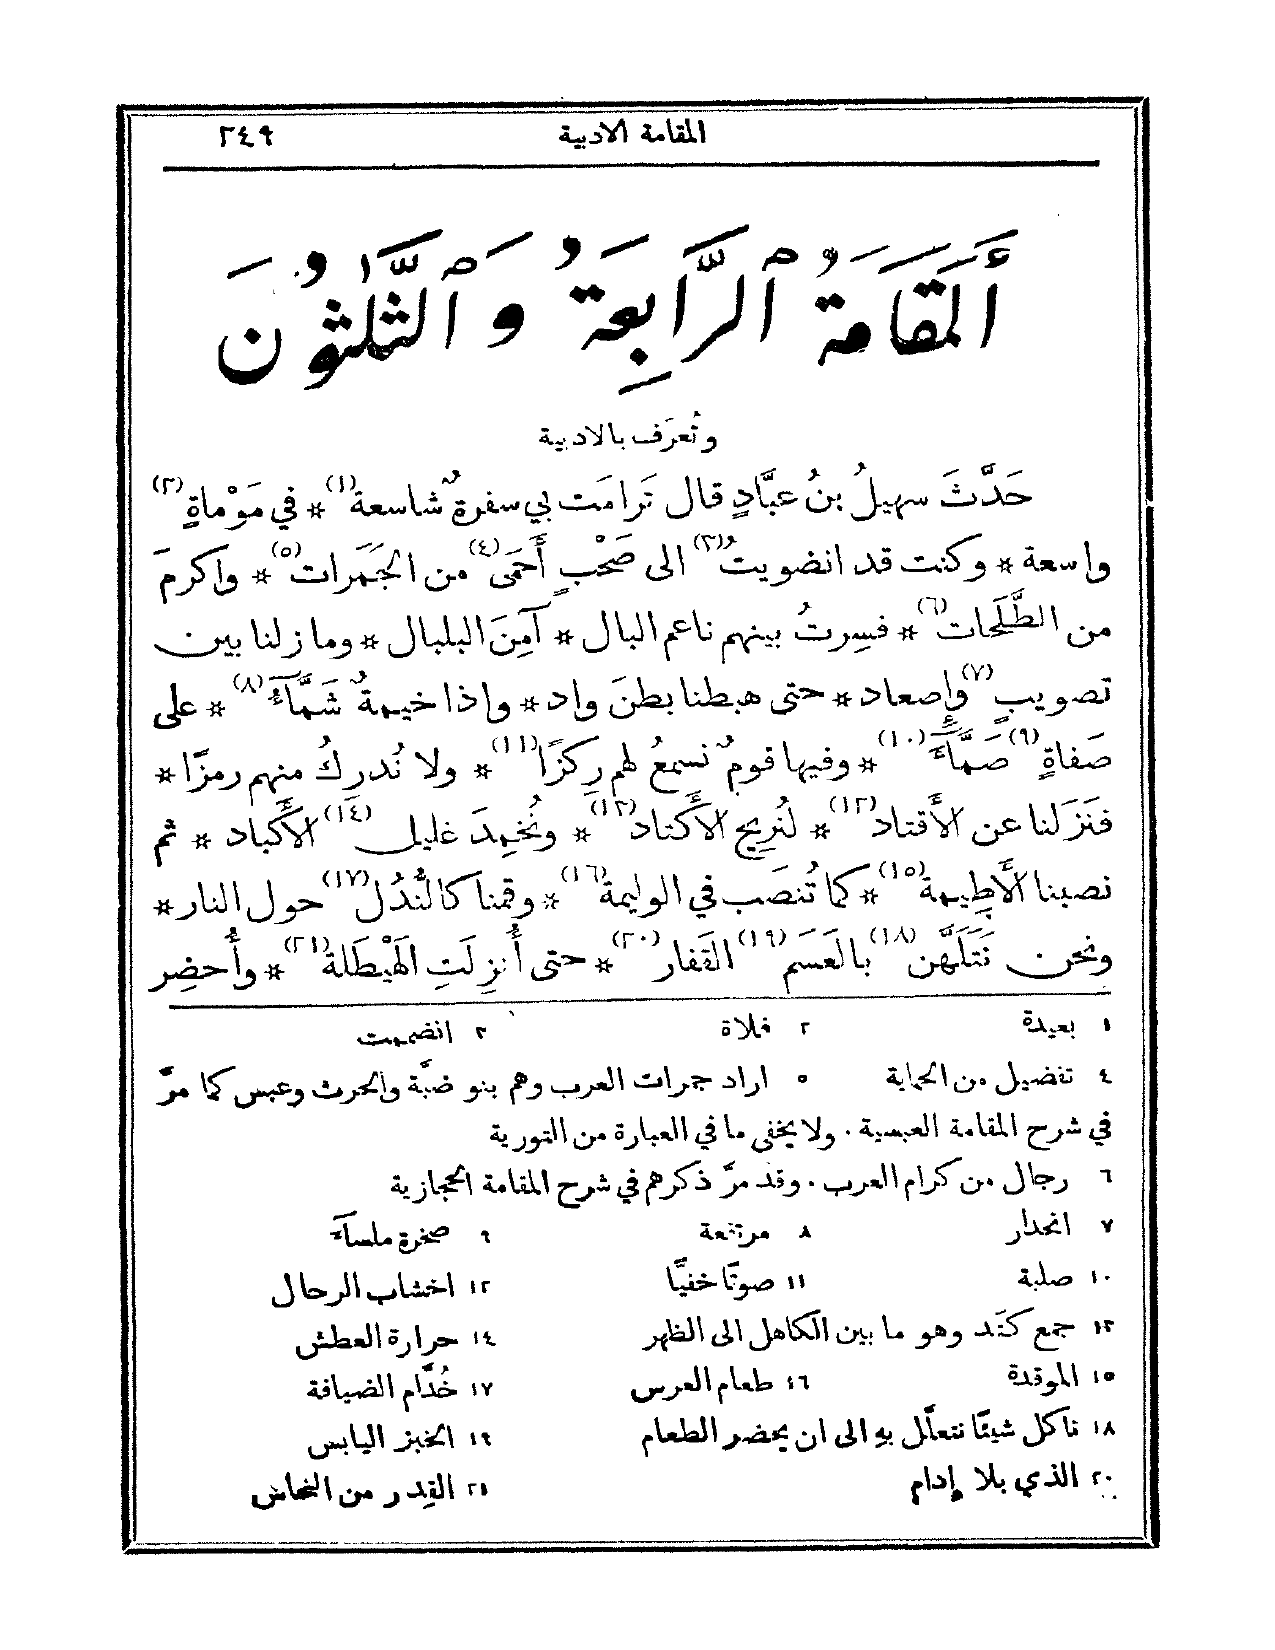 المقامة الادبية ٢٤٩
أَلمَقَامَةُ ٱلرَّابِعَةُ وَٱلثَّلٰثُونَ
وتُعرَف بالادبية
حَدَّثَ سهيلُ بنُ عبَّادٍ قال تَرامَت بي سفرةٌ شاسعة(١) * في مَوْماةٍ(٢)
واسعة * وكنت قد انضويتُ(٣) الى صَحْبٍ أَحَمَى(٤) من الجَمَرات(٥) * واكرمَ
من الطَّلَحات(٦) * فسِرتُ بينهم ناعم البال * آمِنَ البلبال * وما زلنا بين
تصويبٍ(٧) وإصعاد * حتى هبطنا بطنَ واد * واذا خيمةٌ شَمَّآءُ(٨) * على
صَفاةٍ(٩) صَمَّآءَ(١٠) * وفيها قومٌ نسمعُ لهم رِكزًا(١١) * ولا نُدرِكُ منهم رمزًا *
فنَزَلنا عن الأَقتاد(١٢) * لنُرِيحَ الأَكتاد(١٣) * ونُخمِدَ غليل(١٤) الأَكباد * ثم
نصبنا الأَطِيمة(١٥) * كما تُنصَب في الوليمة(١٦) * وقمنا كالنُّدُل(١٧) حول النار *
ونحن نَتَلَهَّن(١٨) بالعَسَم(١٩) القَفار(٢٠) * حتى أُنزِلَتِ الهَيْطَلة(٢١) * وأُحضِر
١ بعيدة ٢ فلاة ٣ انضممت
٤ تفضيل من الحماية ٥ اراد جمرات العرب وهم بنو ضبَّة والحرث وعبس كما مرَّ
في شرح المقامة العبسية. ولا يخفى ما في العبارة من التورية
٦ رجال من كرام العرب. وقد مرَّ ذكرهم في شرح المقامة الحجازية
٧ انحدار ٨ مرتفعة ٩ صخرة ملسآء
١٠ صلبة ١١ صوتًا خفيًّا ١٢ اخشاب الرحال
١٣ جمع كَتَد وهو ما بين الكاهل الى الظهر ١٤ حرارة العطش
١٥ الموقدة ١٦ طعام العرس ١٧ خُدَّام الضيافة
١٨ ناكل شيئًا نتعلَّل بهِ الى ان يحضر الطعام ١٩ الخبز اليابس
٢٠ الذي بلا إدام ٢١ القِدر من النحاس